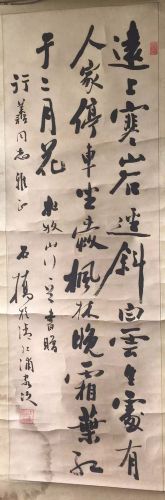 遠上寒山石徑斜白雲生處有
人家停車坐愛楓林晚霜葉紅
于二月花 杜牧山行 書贈
行義同志雅正 石橋於清江浦客次